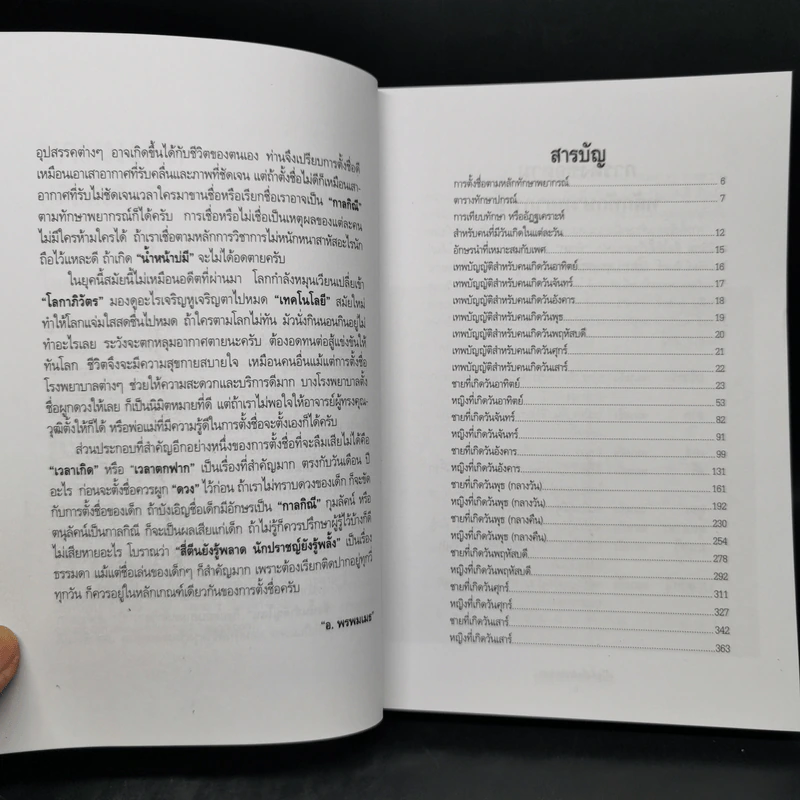 อุปสรรคต่างๆ อาจเกิดขึ้นได้กับชีวิตของตนเอง ท่านจึงเปรียบการตั้งชื่อดี
เหมือนเอาเสาอากาศที่รับคลื่นและภาพที่ชัดเจน แต่ถ้าตั้งชื่อไม่ดีก็เหมือนเสา-
อากาศที่รับไม่ชัดเจนเวลาใครมาขานชื่อหรือเรียกชื่อเราอาจเป็น "กาลกิณี"
ตามทักษาพยากรณ์ก็ได้ครับ การเชื่อหรือไม่เชื่อเป็นเหตุผลของแต่ละคน
ไม่มีใครห้ามใครได้ ถ้าเราเชื่อตามหลักการวิชาการไม่หนักหนาสาหัสอะไรนัก
ถือไว้แหละดี ถ้าเกิด "น้ำหน้าบ่มี" จะไม่ได้อดตายครับ
ในยุคนี้สมัยนี้ไม่เหมือนอดีตที่ผ่านมา โลกกำลังหมุนเวียนเปลี่ยเข้า
"โลกาภิวัตร" มองดูอะไรเจริญหูเจริญตาไปหมด "เทคโนโลยี" สมัยใหม่
ทำให้โลกแจ่มใสสดชื่นไปหมด ถ้าใครตามโลกไม่ทัน มัวนั่งกินนอนกินอยู่ไม่
ทำอะไรเลย ระวังจะตกหลุมอากาศตายนะครับ ต้องอดทนต่อสู้แข่งขันให้
ทันโลก ชีวิตจึงจะมีความสุขกายสบายใจ เหมือนคนอื่นแม้แต่การตั้งชื่อ
โรงพยาบาลต่างๆ ช่วยให้ความสะดวกและบริการดีมาก บางโรงพยาบาลตั้ง
ชื่อผูกดวงให้เลย ก็เป็นนิมิตหมายที่ดี แต่ถ้าเราไม่พอใจให้อาจารย์ผู้ทรงคุณ-
วุฒิตั้งให้ก็ได้ หรือพ่อแม่ที่มีความรู้ดีในการตั้งชื่อจะตั้งเองก็ได้ครับ
ส่วนประกอบที่สำคัญอีกอย่างหนึ่งของการตั้งชื่อที่จะลืมเสียไม่ได้คือ
"เวลาเกิด" หรือ "เวลาตกฟาก" เป็นเรื่องที่สำคัญมาก ตรงกับวันเดือน ปี
อะไร ก่อนจะตั้งชื่อควรผูก "ดวง" ไว้ก่อน ถ้าเราไม่ทราบดวงของเด็ก ก็จะขัด
กับการตั้งชื่อของเด็ก ถ้าบังเอิญชื่อเด็กมีอักษรเป็น "กาลกิณี" กุมลัคน์ หรือ
ตนุลัคน์เป็นกาลกิณี ก็จะเป็นผลเสียแก่เด็ก ถ้าไม่รู้ก็ควรปรึกษาผู้รู้ไว้บ้างก็ดี
ไม่เสียหายอะไร โบราณว่า "สี่ตีนยังรู้พลาด นักปราชญ์ยังรู้พลั้ง" เป็นเรื่อง
ธรรมดา แม้แต่ชื่อเล่นของเด็กๆ ก็สำคัญมาก เพราะต้องเรียกติดปากอยู่ทุกวี่
ทุกวัน ก็ควรอยู่ในหลักเกณฑ์เดียวกันของการตั้งชื่อครับ
"อ. พรพมเมธ"
สารบัญ
การตั้งชื่อตามหลักทักษาพยากรณ์ 6
ตารางทักษาปกรณ์ 7
การเทียบทักษา หรืออัฏฐเคราะห์
สำหรับคนที่มีวันเกิดในแต่ละวัน 12
อักษรนำที่เหมาะสมกับเพศ 15
เทพบัญญัติสำหรับคนเกิดวันอาทิตย์ 16
เทพบัญญัติสำหรับคนเกิดวันจันทร์ 17
เทพบัญญัติสำหรับคนเกิดวันอังคาร 18
เทพบัญญัติสำหรับคนเกิดวันพุธ 19
เทพบัญญัติสำหรับคนเกิดวันพฤหัสบดี 20
เทพบัญญัติสำหรับคนเกิดวันศุกร์ 21
เทพบัญญัติสำหรับคนเกิดวันเสาร์ 22
ชายที่เกิดวันอาทิตย์ 23
หญิงที่เกิดวันอาทิตย์ 53
ชายที่เกิดวันจันทร์ 82
หญิงที่เกิดวันจันทร์ 91
ชายที่เกิดวันอังคาร 99
หญิงที่เกิดวันอังคาร 131
ชายที่เกิดวันพุธ (กลางวัน) 161
หญิงที่เกิดวันพุธ (กลางวัน) 192
ชายที่เกิดวันพุธ (กลางคืน) 230
หญิงที่เกิดวันพุธ (กลางคืน) 254
ชายที่เกิดวันพฤหัสบดี 278
หญิงที่เกิดวันพฤหัสบดี 292
ชายที่เกิดวันศุกร์ 311
หญิงที่เกิดวันศุกร์ 327
ชายที่เกิดวันเสาร์ 342
หญิงที่เกิดวันเสาร์ 363